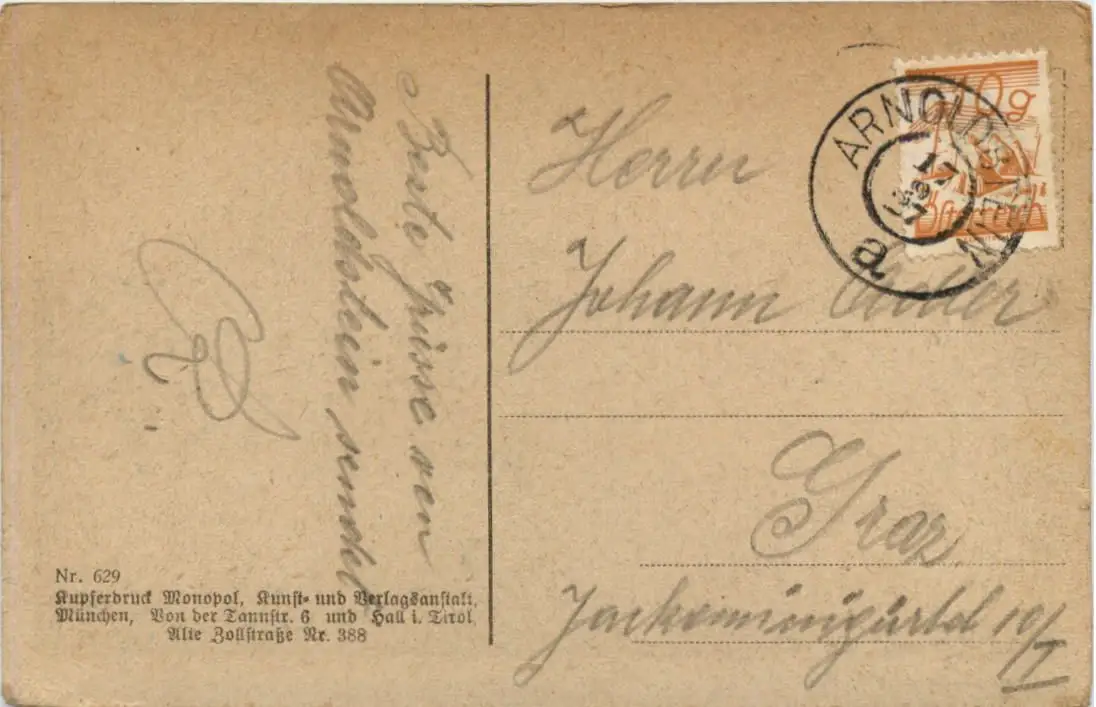 Beste Grüsse von
Arnoldstein sendet
Nr. 629
Kupferdruck Monopol, Kunst- und Verlagsanstalt,
München, Von der Tannstr. 6 und Hall i. Tirol
Alte Zollstraße Nr. 388
10g
Österreich
ARNOLDSTEIN
a
Herrn
Johann
Graz
Jackominigürtel 10/I